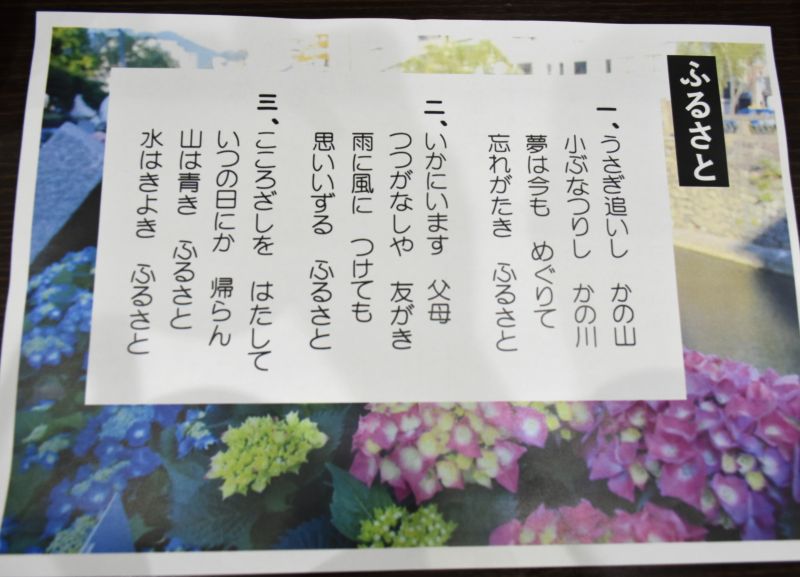 ふるさと
一、うさぎ追いし　かの山
小ぶなつりし　かの川
夢は今も　めぐりて
忘れがたき　ふるさと
二、いかにいます　父母
つつがなしや　友がき
雨に風に　つけても
思いいずる　ふるさと
三、こころざしを　はたして
いつの日にか　帰らん
山は青き　ふるさと
水はきよき　ふるさと